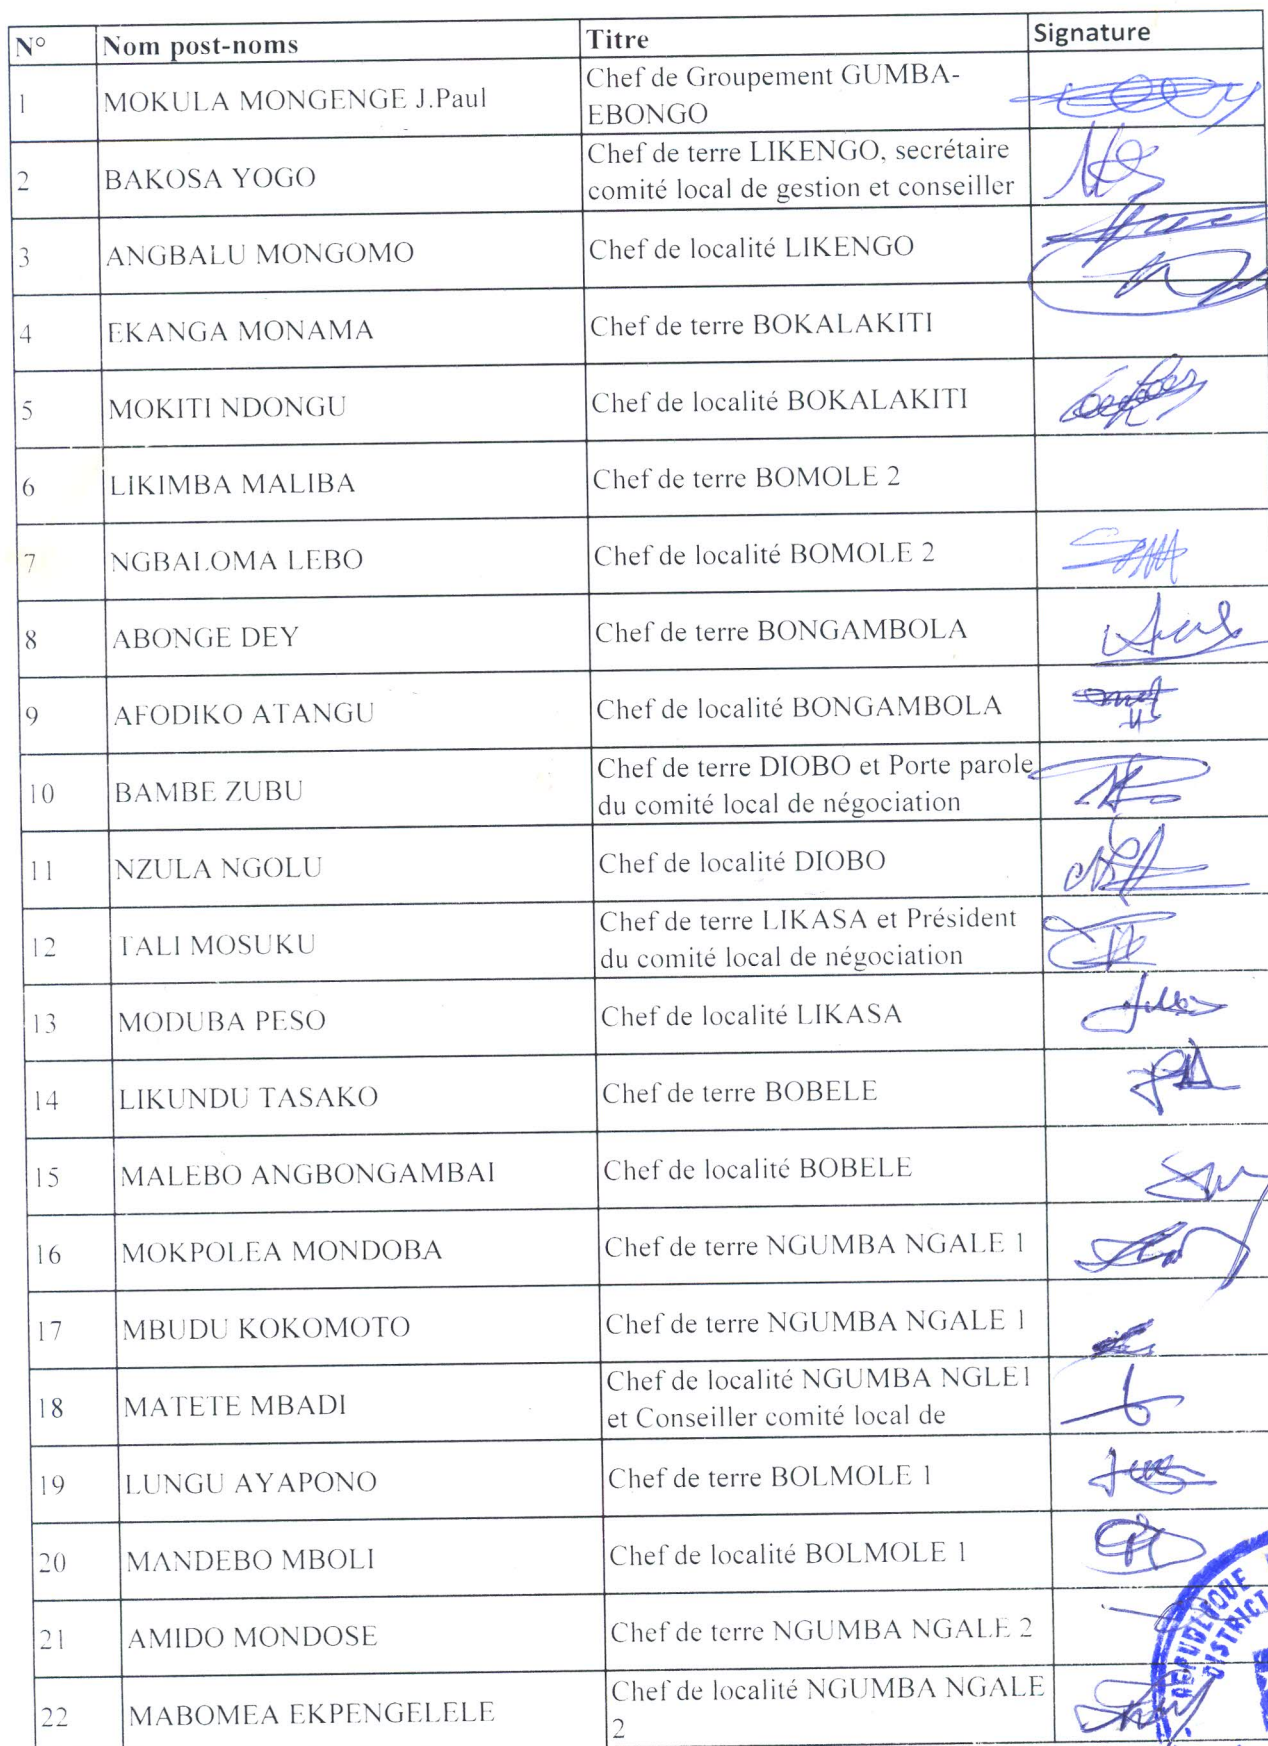 N° Nom post-noms Titre Signature
1 MOKULA MONGENGE J.Paul Chef de Groupement GUMBA-
EBONGO
2 BAKOSA YOGO Chef de terre LIKENGO, secrétaire
comité local de gestion et conseiller
3 ANGBALU MONGOMO Chef de localité LIKENGO
4 EKANGA MONAMA Chef de terre BOKALAKITI
5 MOKITI NDONGU Chef de localité BOKALAKITI
6 LIKIMBA MALIBA Chef de terre BOMOLE 2
7 NGBALOMA LEBO Chef de localité BOMOLE 2
8 ABONGE DEY Chef de terre BONGAMBOLA
9 AFODIKO ATANGU Chef de localité BONGAMBOLA
10 BAMBE ZUBU Chef de terre DIOBO et Porte parole
du comité local de négociation
11 NZULA NGOLU Chef de localité DIOBO
12 TALI MOSUKU Chef de terre LIKASA et Président
du comité local de négociation
13 MODUBA PESO Chef de localité LIKASA
14 LIKUNDU TASAKO Chef de terre BOBELE
15 MALEBO ANGBONGAMBAI Chef de localité BOBELE
16 MOKPOLEA MONDOBA Chef de terre NGUMBA NGALE 1
17 MBUDU KOKOMOTO Chef de terre NGUMBA NGALE 1
18 MATETE MBADI Chef de localité NGUMBA NGLE1
et Conseiller comité local de
19 LUNGU AYAPONO Chef de terre BOLMOLE 1
20 MANDEBO MBOLI Chef de localité BOLMOLE 1
21 AMIDO MONDOSE Chef de terre NGUMBA NGALE 2
22 MABOMEA EKPENGELELE Chef de localité NGUMBA NGALE
2
REPUBLIQUE
DISTRICT